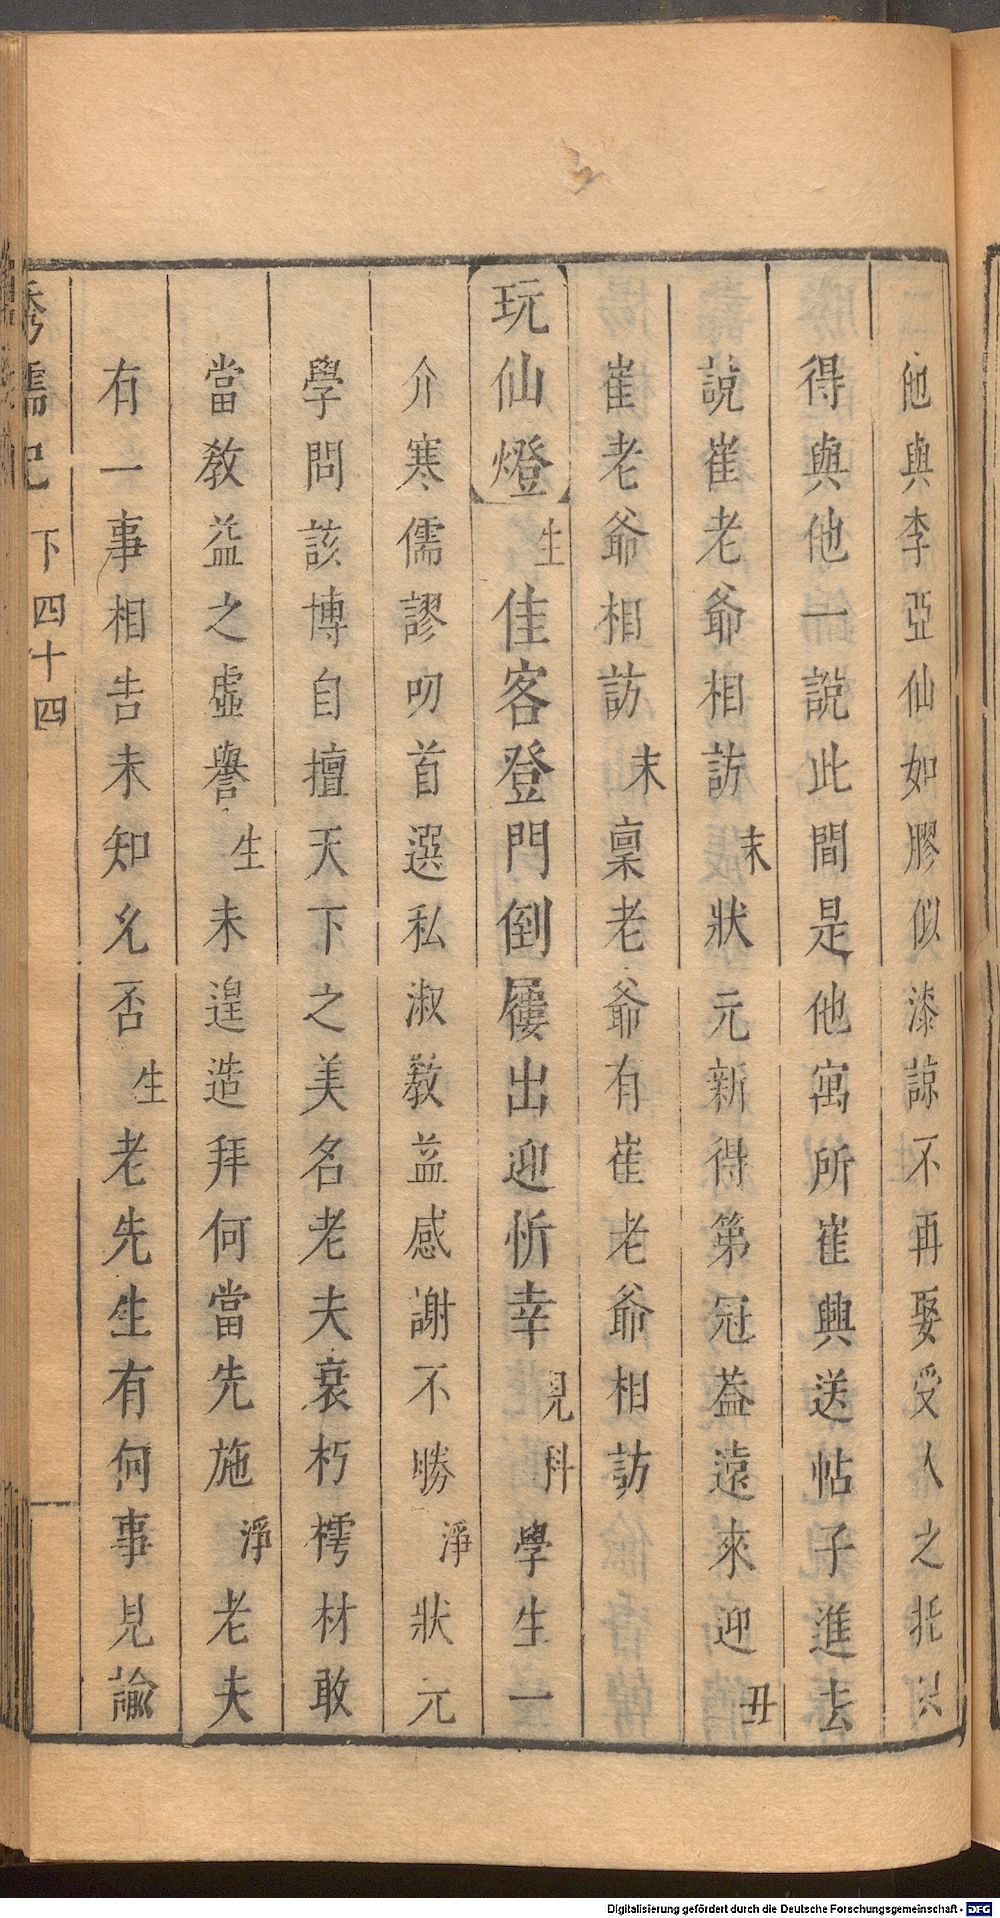 他與李亞仙如膠似漆諒不再娶受人之托只
得與他一說此間是他寓所崔興送帖子進去
說崔老爺相訪末狀元新得第冠葢遠來迎丑
崔老爺相訪末稟老爺有崔老爺相訪
玩仙燈生佳客登門倒屨出迎忻幸見科學生一
介寒儒謬叨首選私淑敎益感謝不勝淨狀元
學問該博自擅天下之美名老夫衰朽樗材敢
當敎益之虛譽生未遑造拜何當先施淨老夫
有一事相告未知允否生老先生有何事見諭
繡襦記 下四十四
Digitalisierung gefördert durch die Deutsche Forschungsgemeinschaft - DFG